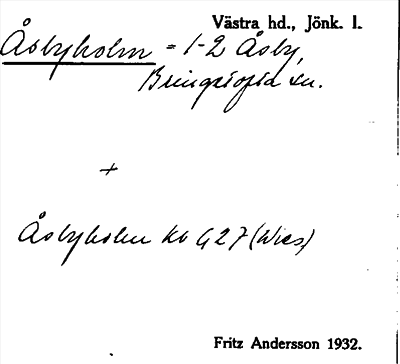 Västra hd., Jönk. l.
Åsbyholm = 1-2 Åsby,
Bringetofta sn.
+
Åsbyholm Kb G27 (Wies)
Fritz Andersson 1932.